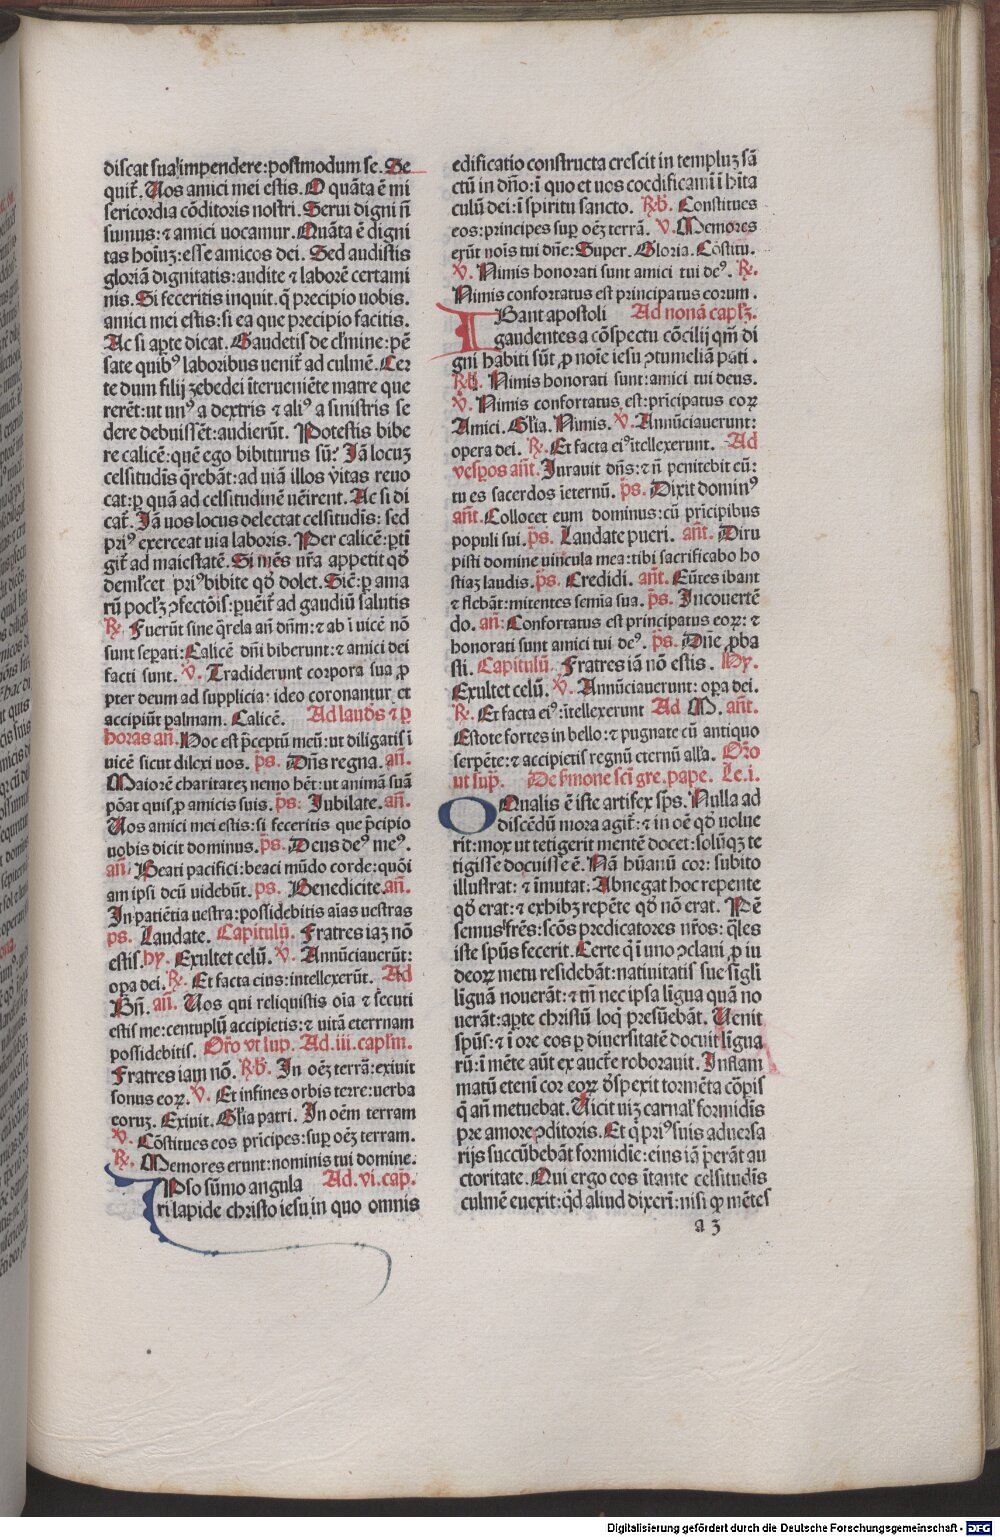 discat sua impendere: postmodum se. Se
quit᷑. Uos amici mei estis. O quāta ē mi
sericordia cōditoris nostri. Serui digni nō
sumus: ⁊ amici uocamur. Quāta ē digni
tas hoīuꝫ: esse amicos dei. Sed audistis
gloriā dignitatis: audite ⁊ laborē certami
nis. Si feceritis inquit. q̄ precipio uobis.
amici mei estis: si ea que precipio facitis.
Ac si apte dicat. Gaudetis de clmine: pē
sate quibꝰ laboribus uenit᷑ ad culmē. Cer
te dum filij zebedei īterueniēte matre que
rerēt: ut unꝰ a dextris ⁊ aliꝰ a sinistris se
dere debuissēt: audierūt. Potestis bibe
re calicē: quē ego bibiturus sū: Jā locuꝫ
celsitudīs q̄rebāt: ad uiā illos ꝟitas reuo
cat: ꝑ quā ad celsitudinē uēirent. Ac si di
cat᷑. Jā uos locus delectat celsitudīs: sed
priꝰ exerceat uia laboris. Per calicē: ꝑtī
git᷑ ad maiestatē. Si mēs ur̄a appetit qd̄
demlcet priꝰ bibite qd̄ dolet. Siē: ꝑ ama
rū poclꝫ ꝯfectōis: ꝑuēit᷑ ad gaudiū salutis
℟. Fuerūt sine q̄rela an̄ dn̄m: ⁊ ab ī uicē nō
sunt seꝑati: Calicē dn̄i biberunt: ⁊ amici dei
facti sunt. ℣. Tradiderunt corpora sua ꝓ
pter deum ad supplicia: ideo coronantur et
accipiūt palmam. Calicē. Ad laud̄s ⁊ ꝑ
horas an̄. Hoc est p̄ceptū meū: ut diligatis ī
uicē sicut dilexi uos. p̄s. Dn̄s regna. an̄.
Maiorē charitateꝫ nemo hēt: ut animā suā
pōat quis ꝓ amicis suis. p̄s: Jubilate. an̄.
Uos amici mei estis: si feceritis que p̄cipio
uobis dicit dominus. p̄s. Deus deꝰ meꝰ.
an̄. Beati pacifici: beaci mūdo corde: quōi
am ipsi deū uidebūt. ps. Benedicite. an̄.
In patiētia uestra: possidebitis aīas uestras
ps. Laudate. Capitulū. Fratres iaꝫ nō
estis. hy. Exultet celū. ℣. Annūciauerūt:
oꝑa dei. ℟. Et facta eius: intellexerūt. Ad
Bn̄. an̄. Uos qui reliquistis oīa ⁊ secuti
estis me: centuplū accipietis: ⁊ uitā eternam
possidebitis. Or̄o vt sup. Ad. iii. caplm.
Fratres iam nō. ℟b. In oēꝫ terrā: exiuit
sonus eoꝝ. V. Et infines orbis terre: uerba
eoruꝫ. Exiuit. Gl̄ia patri. In oēm terram
℣. Cōstitues eos prīcipes: suꝑ oēꝫ terram.
℟. Memores erunt: nominis tui domine.
IPso sūmo angula Ad. vi. cap.
ri lapide christo iesu in quo omnis
edificatio constructa crescit in templuꝫ sā
ctū in dn̄o: ī quo et uos coedificaminī ī hīta
culū dei: ī spiritu sancto. ℟b. Constitues
eos: principes suꝑ oēꝫ terrā. V. Memores
erūt noīs tui dn̄e: Super. Gloria. Cōstitu.
℣. Nimis honorati sunt amici tui deꝰ. ℟.
Nimis confortatus est principatus eorum.
IBant apostoli Ad nonā caplꝫ.
gaudentes a cōspectu cōcilij qm̄ di
gni habiti sūt ꝓ noīe iesu ꝯtumeliā pati.
℟b. Nimis honorati sunt: amici tui deus.
℣. Nimis confortatus est: pricipatus eoꝝ
Amici. Gl̄ia. Nimis. ℣. Annūciauerunt:
opera dei. ℟. Et facta eiꝰ ītellexerunt. Ad
vesꝑos an̄t. Jurauit dn̄s: ⁊ n̄ penitebit eū:
tu es sacerdos ieternū. p̄s. Dixit dominꝰ
an̄t. Collocet eum dominus: cū prīcipibus
populi sui. p̄s. Laudate pueri. an̄t. Diru
pisti domine uincula mea: tibi sacrificabo ho
stiaꝫ laudis. p̄s. Credidi. an̄t. Eūtes ibant
⁊ flebāt: mitentes semīa sua. p̄s. In cōuertē
do. an̄: Confortatus est principatus eoꝝ: ⁊
honorati sunt amici tui deꝰ. p̄s. Dn̄e ꝓba
sti. Capitulū. Fratres iā nō estis. Hy.
Exultet celū. ℣. Annūciauerunt: oꝑa dei.
℟. Et facta eiꝰ: ītellexerunt Ad M. an̄t.
Estote fortes in bello: ⁊ pugnate cū antiquo
serpēte: ⁊ accipietis regnū eternū alla. Or̄o
ut suꝑ. De s̄mone sc̄i gre. pape. Le. i.
OQualis ē iste artifex sps. Nulla ad
discēdū mora agit᷑: ⁊ in oē qd̄ uolue
rit: mox ut tetigerit mentē docet: solūqꝫ te
tigisse docuisse ē. Nā hūanū cor: subito
illustrat: ⁊ īmutat. Abnegat hoc repente
qd̄ erat: ⁊ exhibꝫ repēte qd̄ nō erat. Pē
semus fr̄es: sc̄os predicatores nr̄os: q̄les
iste spūs fecerit. Certe q̄ ī uno ꝯclaui ꝓ iu
deoꝝ metu residebāt: natiuitatis sue sīgli
līguā nouerāt: ⁊ tn̄ nec ipsa līgua quā no
uerāt: aꝑte christū loq̄ presūebāt. Uenit
spūs: ⁊ ī ore eos ꝑ diuersitatē docuit līgua
rū: ī mēte aūt ex auctr̄e roborauit. Inflam
matū eteni cor eoꝝ d̄spexit tormēta cōꝑis
q̄ an̄ metuebat. Uicit uiꝫ carnal' formidīs
pre amore ꝯditoris. Et q̄ priꝰ suis aduersa
rijs succūbebāt formidīe: eius iā ꝑerāt au
ctoritate. Qui ergo eos ītante celsitudīs
culmē euexit: qd̄ aliud dixerī: nisi ꝙ mētes
a 3
Digitalisierung gefördert durch die Deutsche Forschungsgemeinschaft - DFG